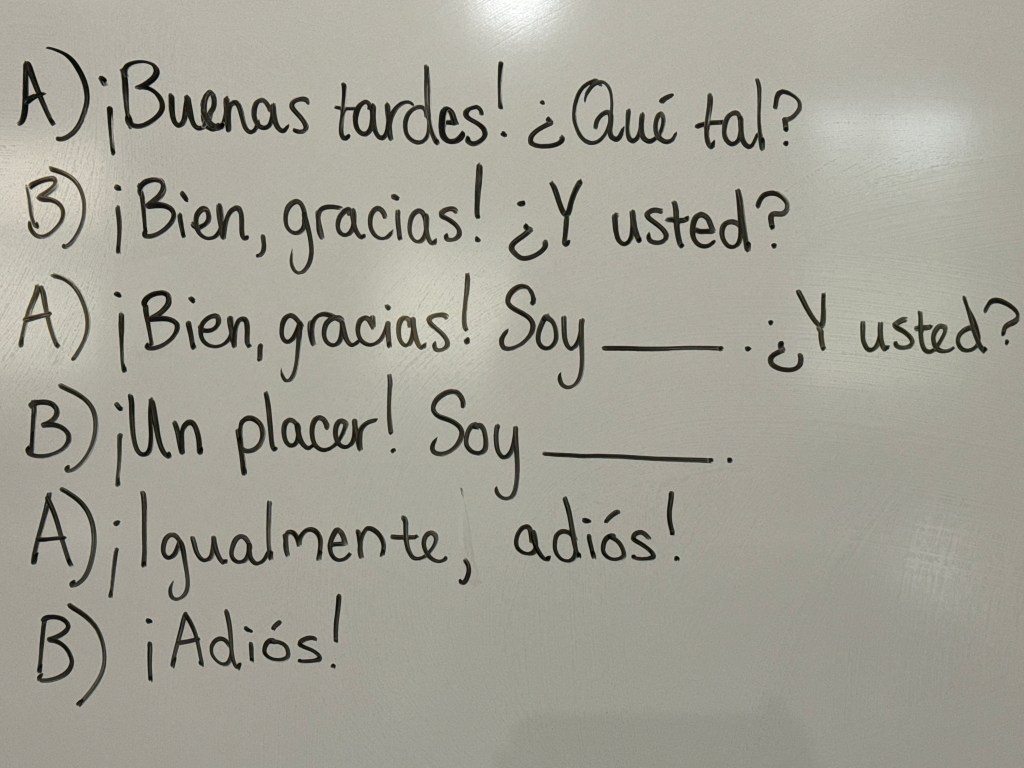 A) ¡Buenas tardes! ¿Qué tal?
B) ¡Bien, gracias! ¿Y usted?
A) ¡Bien, gracias! Soy ____. ¿Y usted?
B) ¡Un placer! Soy ______.
A) ¡Igualmente, adiós!
B) ¡Adiós!